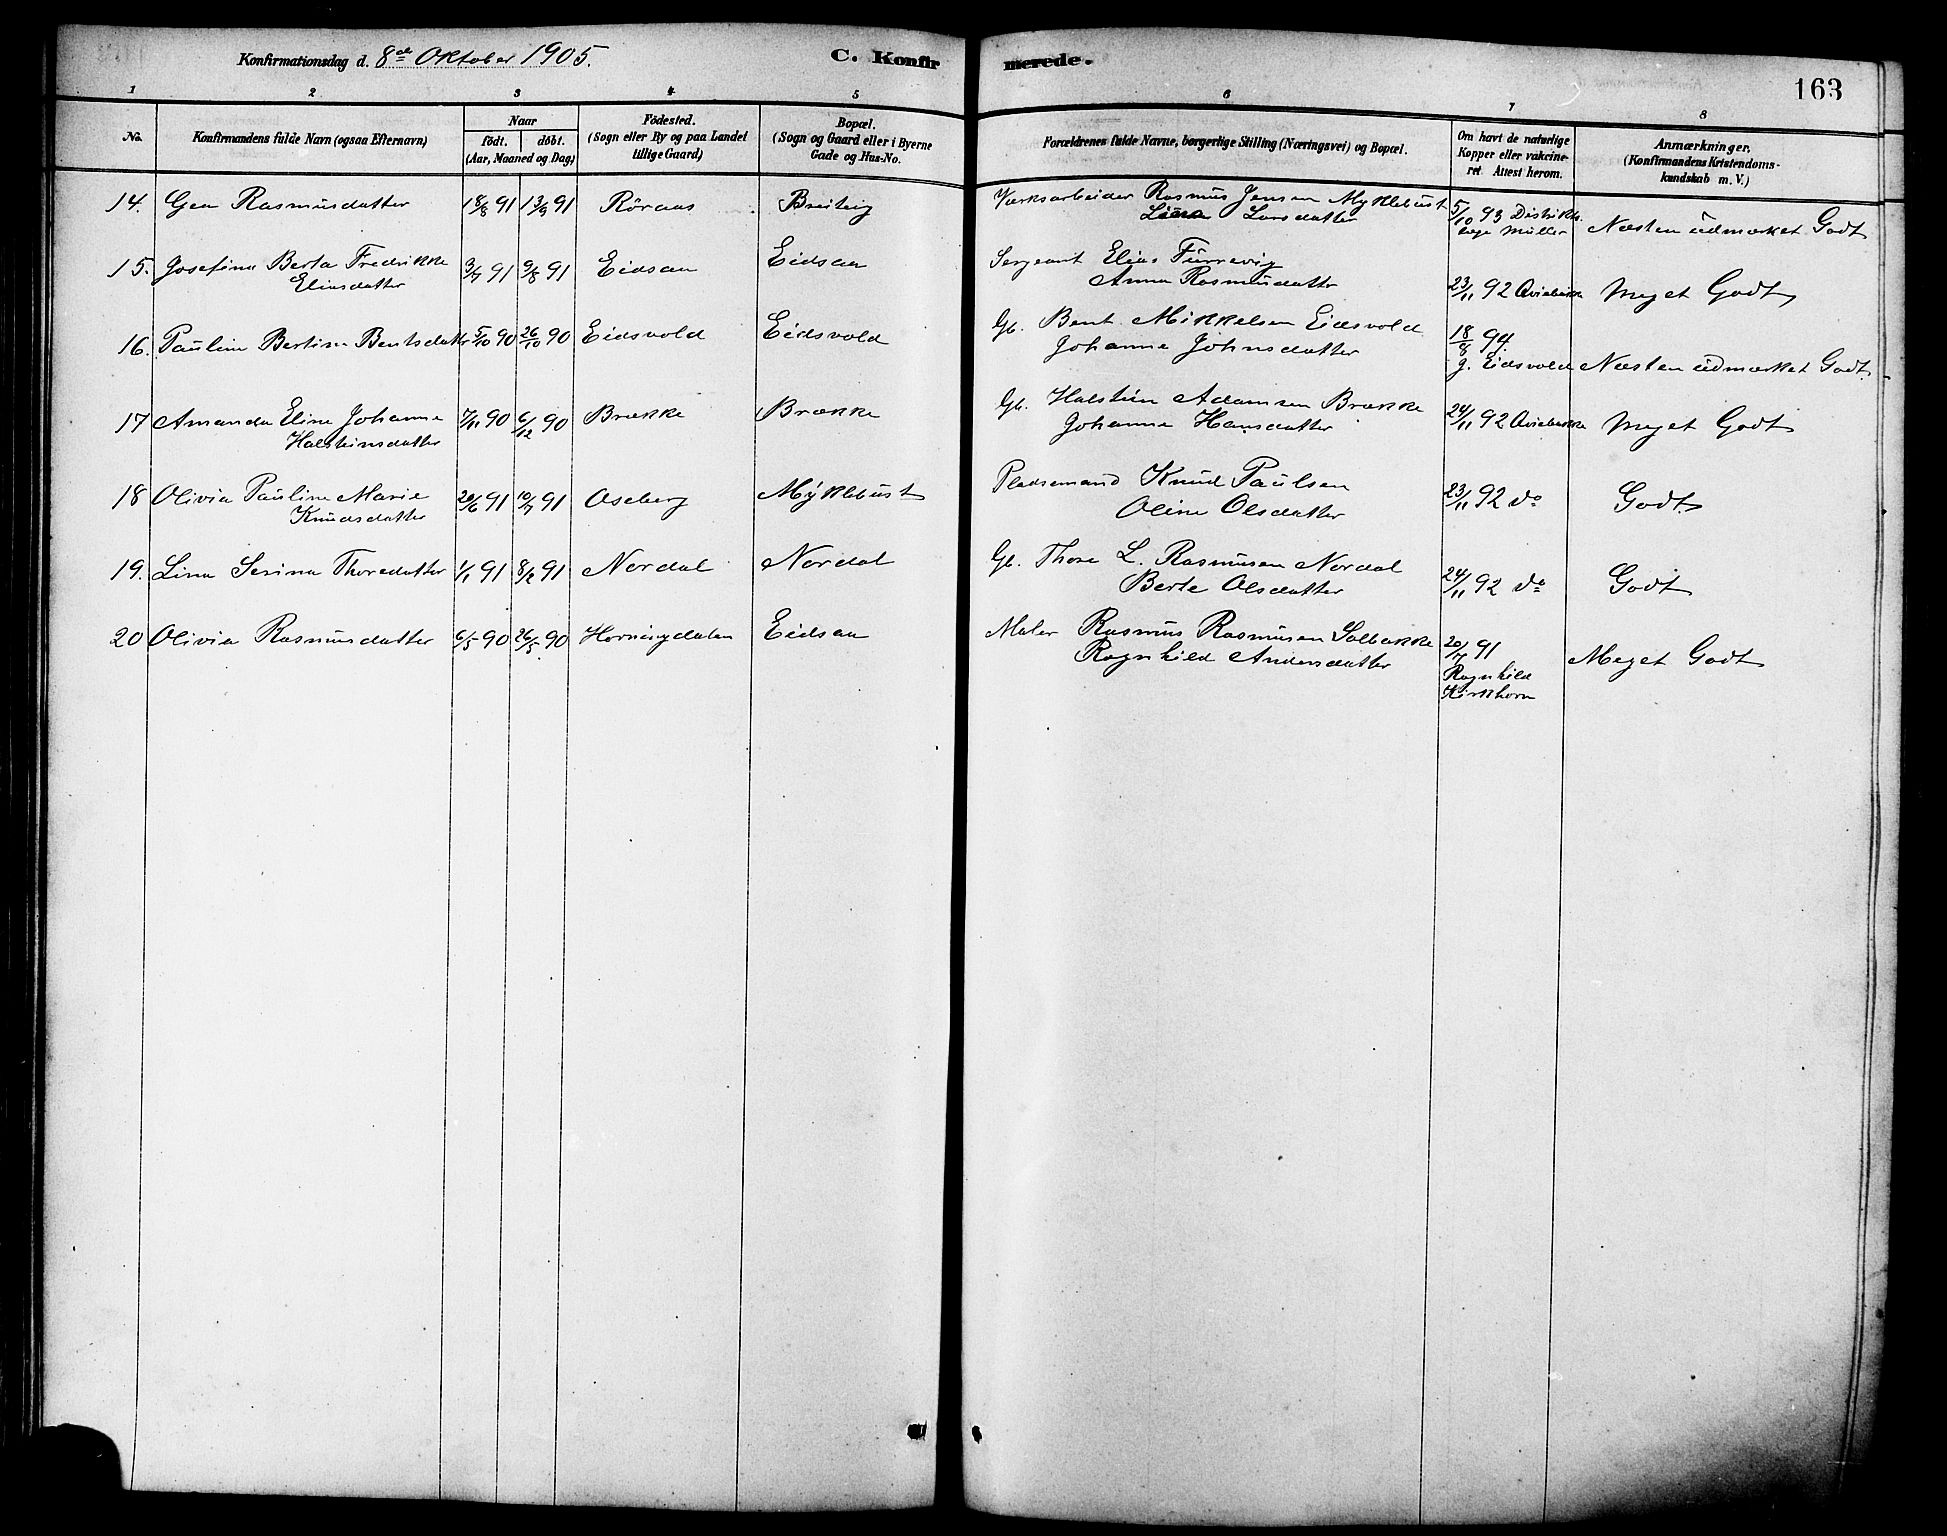 Konfirmationsdag d. 8de Oktober 1905.
C. Konfir
merede.
163
1 2 3 4 5 6 7 8
No.
Konfirmandens fulde Navn (ogsaa Efternavn)
Naar
födt. döbt.
(Aar, Maaned og Dag)
Födested.
(Sogn eller By og paa Landet
tillige Gaard)
Bopæl.
(Sogn og Gaard eller i Byerne
Gade og Hus-No.
Forældrenes fulde Navne, borgerlige Stilling (Næringsvei) og Bopæl.
Om havt de naturlige
Kopper eller vakcine-
ret. Attest herom.
Anmærkninger.
(Konfirmandens Kristendoms-
kundskab m. V.)
14. Gea Rasmusdatter 18/8 91 13/9 91 Röraas Breiteig Værksarbeider Rasmus Jensen Myklebust 5/10 93 Distrikts-
Larsdatter læge Müller Næsten üdmærket Godt
15. Josefine Berta Fredrikke 3/7 91 9/8 91 Eidsaa Eidsaa Sergeant Elias Fürrevig
Eliasdatter Anna Rasmusdatter 23/11 92 Meget Godt
16. Pauline Bertine Bentsdatter 5/10 90 26/10 90 Eidsvold Eidsvold Gb. Bent Mikkelsen Eidsvold 18/8 94.
Johanne Johnsdatter J. Eidsvold Næsten üdmærket Godt.
17 Amanda Eline Johanne 7/11 90 6/12 90 Brække Brække Gb. Halstein Adamsen Brække 24/11 92
Halsteinsdatter Johanne Hansdatter Meget Godt
18 Olivia Pauline Marie 20/6 91 10/7 91 Aseberg Myklebust Pladsemand Knud Paulsen 23/11 92 do Godt
Knudsdatter Oline Olsdatter
19. Lina Serina Thoredatter 1/1 91 8/2 91 Nordal Nordal Gb. Thore L. Rasmusen Nordal
Berte Olsdatter 24/11 92 do Godt
20 Olivia Rasmusdatter 6/5 90 26/5 90 Horningdalen Eidsaa Maler Rasmus Rasmusen Solbakke 20/7 91
Ragnhild Andersdatter Meget Godt
Ragnhild
Kirkhorn